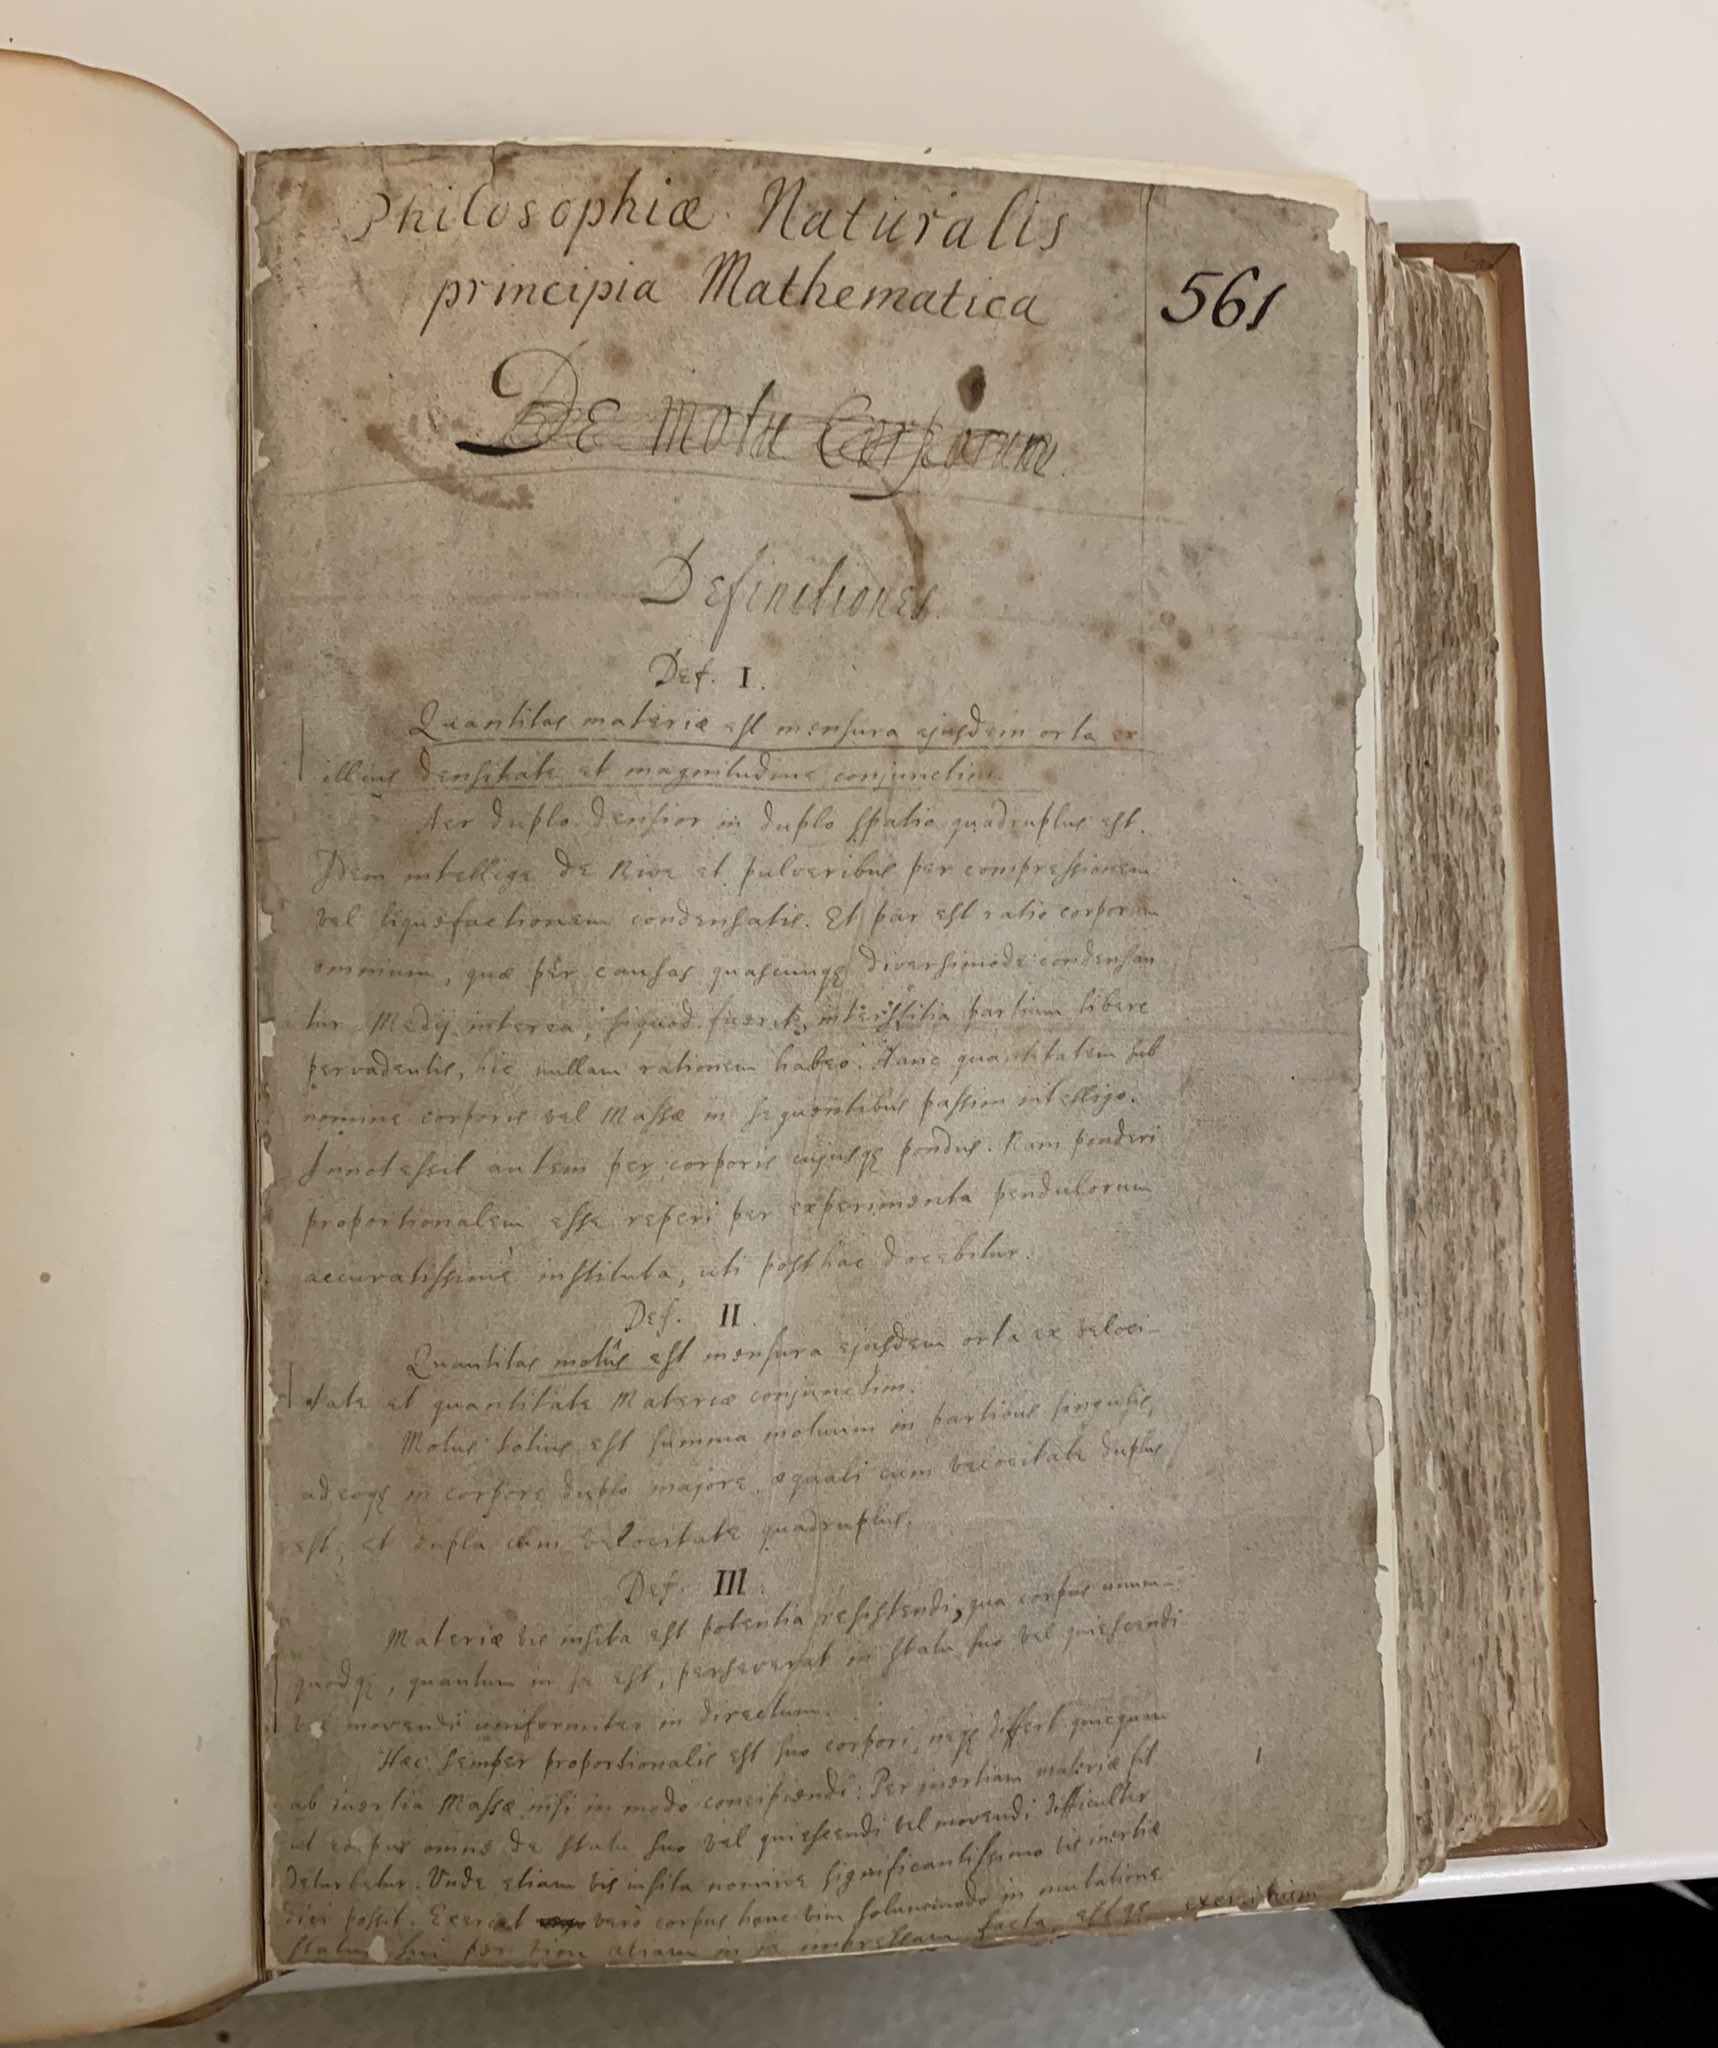 Philosophiæ Naturalis
principia Mathematica
561
De motu Corporum
Definitiones
Def. I.
Quantitas materiæ est mensura ejusdem orta ex
illius densitate et magnitudine conjunctim.
Aer duplo densior in duplo spatio quadruplus est.
Idem intellige de Nive et pulveribus per compressionem
vel liquefactionem condensatis. Et par est ratio corporum
omnium, quæ per causas quascunqꝫ diversimode condensan
tur Medij interea, siquod fuerit, interstitia partium libere
pervadentis, hic nullam rationem habeo. Hanc quantitatem sub
nomine corporis vel Massæ in sequentibus passim intelligo.
Innotescit autem per corporis cujusqꝫ pondus. Nam ponderi
proportionalem esse reperi per experimenta pendulorum
accuratissimè instituta, uti posthac docebitur.
Def. II.
Quantitas motûs est mensura ejusdem orta ex veloci-
tate et quantitate Materiæ conjunctim.
Motus totius est summa motuum in partibus singulis,
adeoqꝫ in corpore duplo majore æquali cum velocitate duplus
est, et dupla cum velocitate quadruplus.
Def. III.
Materiæ vis insita est potentia resistendi, qua corpus unum-
quodqꝫ, quantum in se est, perseverat in statu suo vel quiescendi
vel movendi uniformiter in directum.
Hæc semper proportionalis est suo corpori, neqꝫ differt quicquam
ab inertia Massæ nisi in modo concipiendi. Per inertiam materiæ fit
ut corpus omne de statu suo vel quiescendi vel movendi difficulter
deturbetur. Unde etiam vis insita nomine significantissimo vis inertiæ
dici possit. Exercet vero corpus hanc vim solummodo in mutatione
status sui per vim aliam in se impressam facta, estqꝫ exercitium